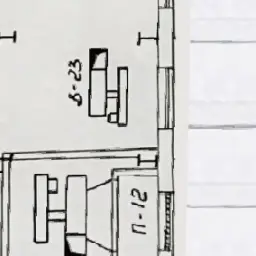 В-23
П-12